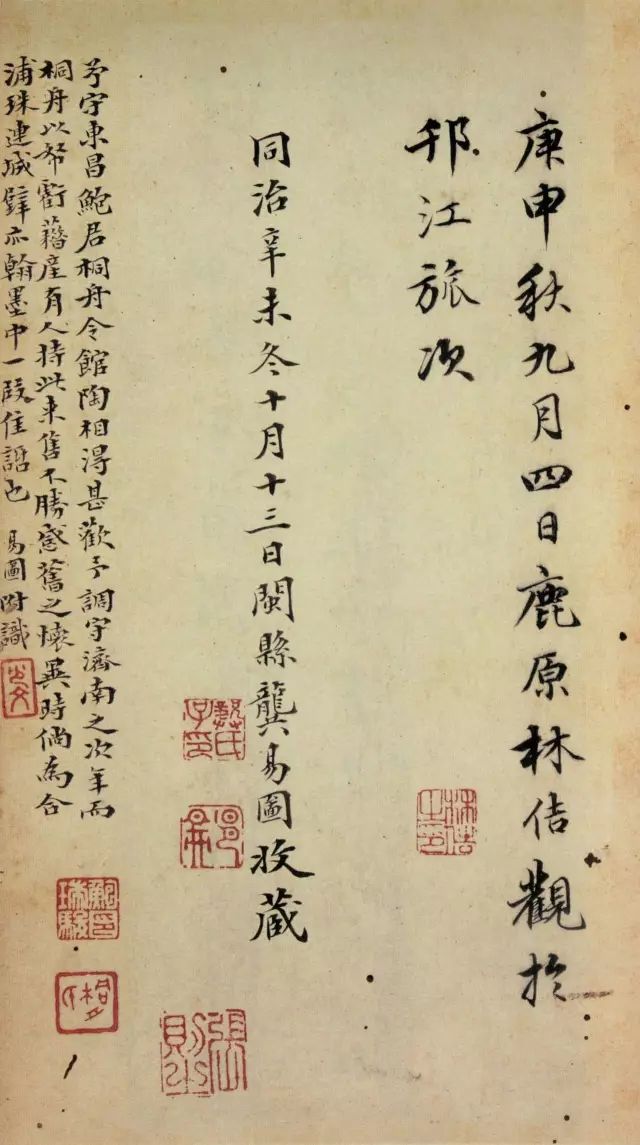 庚申秋九月四日鹿原林佶觀於
邗江旅次
林佶之印
同治辛未冬十月十三日閩縣龔易圖收藏
張則之
予守東昌鮑君桐舟令館陶相得甚歡予調守濟南之次年而
桐舟以帑虧藉產有人持此來售不勝感舊之懷異時倘為合
浦珠連城璧亦翰墨中一段佳話也 易圖附識
鮑瑞駿印